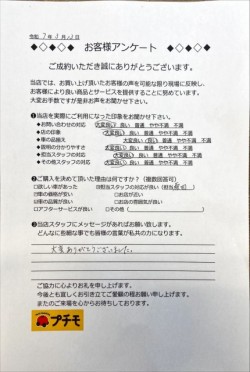 令和 7年 5月
◆◇◆◇◆ お客様アンケート ◆◇◆◇◆
ご成約いただき誠にありがとうございます。
当店では、お買い上げ頂いたお客様の声を可能な限り現場に反映し、
お客様により良い商品とサービスを提供することに努めています。
大変お手数ですが是非お声をお聞かせ下さい。
❶当店を実際にご利用になった印象をお聞かせ下さい。
◆お問い合わせの対応 大変良い 良い 普通 やや不満 不満
◆店の印象 大変良い 良い 普通 やや不満 不満
◆車の品揃え 大変良い 良い 普通 やや不満 不満
◆説明の分かりやすさ 大変良い 良い 普通 やや不満 不満
◆担当スタッフの対応 大変良い 良い 普通 やや不満 不満
◆その他スタッフの対応 大変良い 良い 普通 やや不満 不満
❷ご購入を決めて頂いた理由は何ですか？（複数回答可）
□欲しい車があった □担当スタッフの対応が良い（担当 ）
□車の価格が安い □お店が近い
□車の品質が良い □お店の雰囲気が良い
□アフターサービスが良い □その他（ ）
❸当店スタッフにメッセージがあればお願い致します。
どんなに些細な事でも皆様の言葉が私共の力になります。
大変ありがとうございました。
ご協力に心よりお礼を申し上げます。
今後とも宜しくお引き立てご愛顧の程お願い申し上げます。
またのご来場を心からお待ちしております。
プチモ